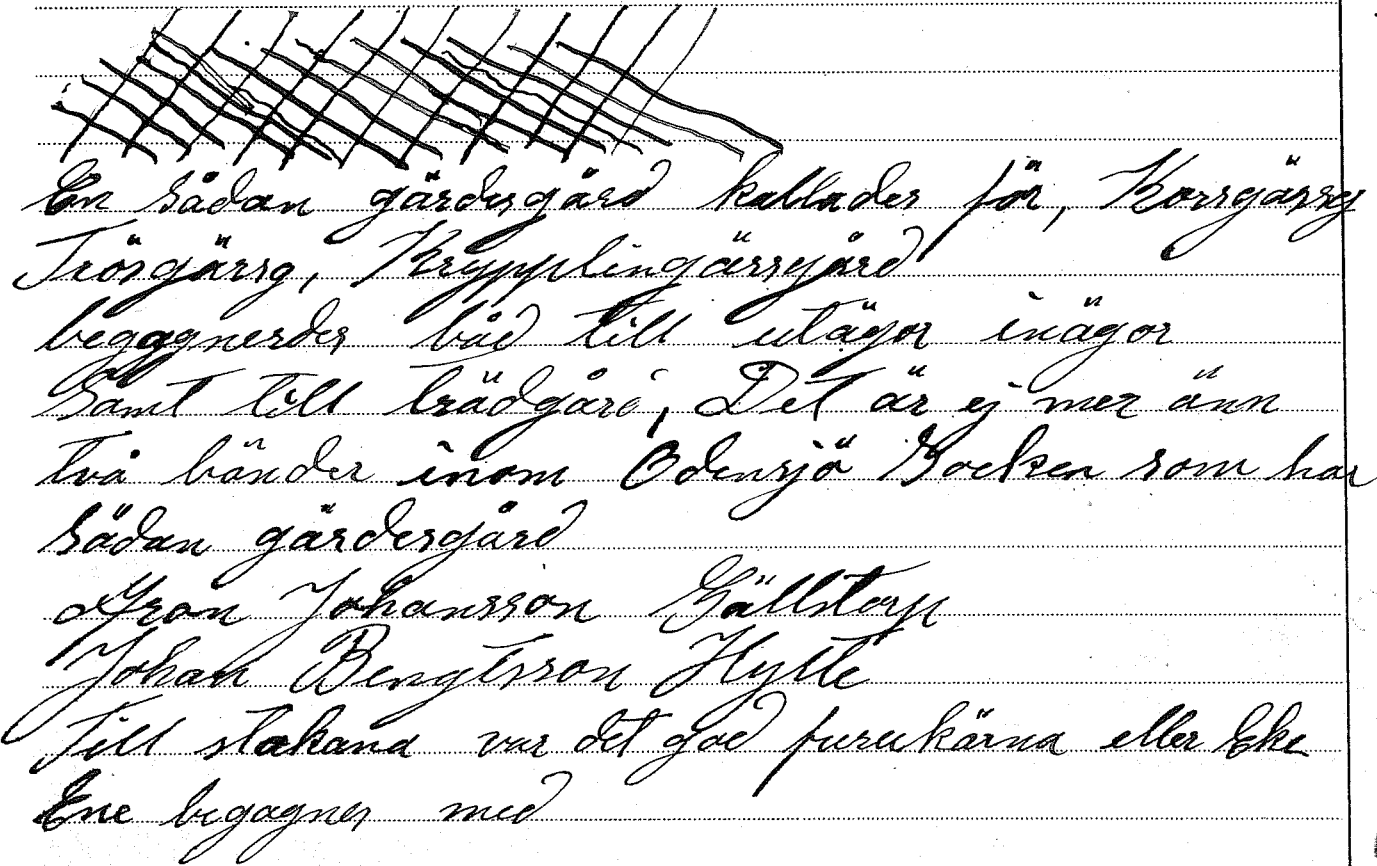 En sådan gärdesgård kallades för, Korsgärsg
Trösgärsg, Krypplingärsgård
begagnerdes båd till utägor inägor
Samt till trädgård, Det är ej mer änn
två bönder inom Odensjö Socken som har
sådan gärdesgård
Aron Johansson Gällstorp
Johan Bengtsson Hylte
Till stakana var det god furukärna eller Eke
Ene begagnes med